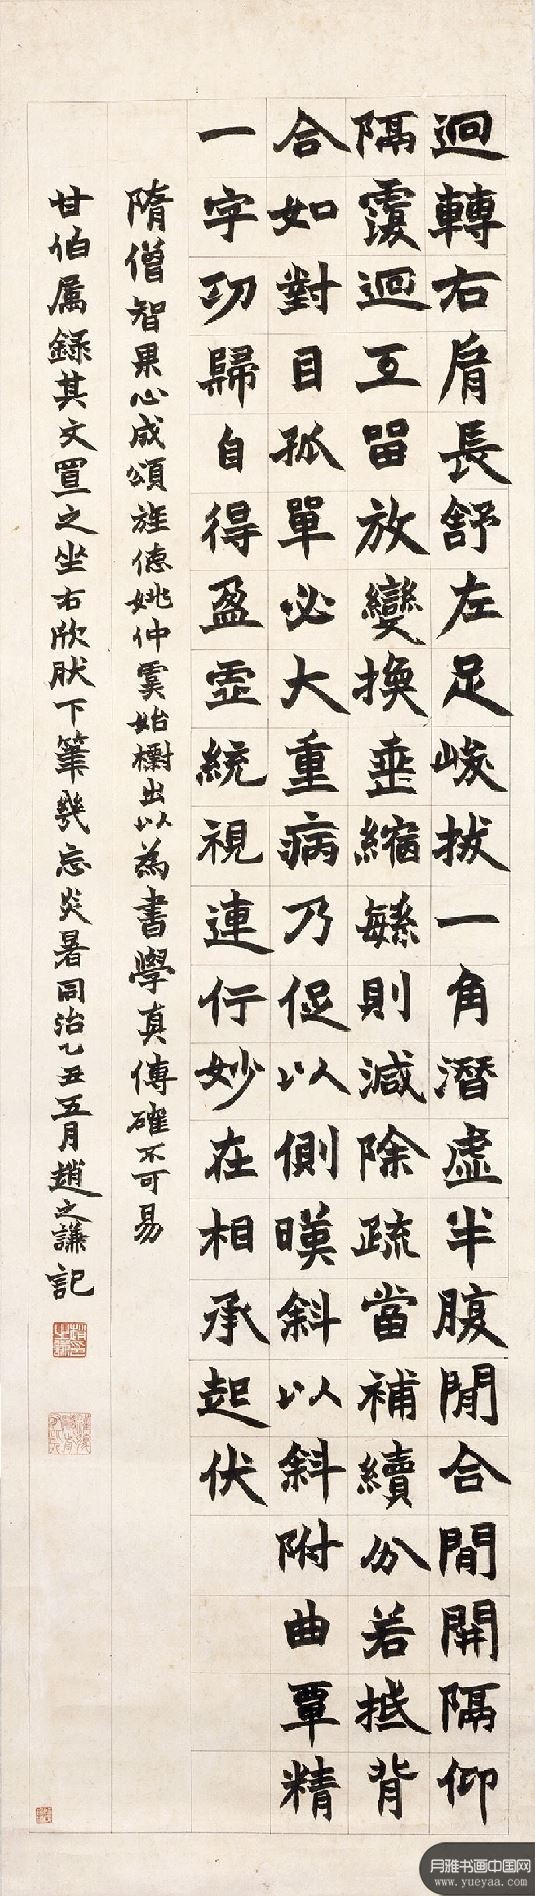 迴轉右肩長舒左足峻拔一角潛虛半腹間合間開隔仰
隔覆迴互留放變換垂縮繁則減除疏當補續分若抵背
合如對目孤單必大重病乃促以側映斜以斜附曲覃精
一字功歸自得盈虛統視連行妙在相承起伏
隋僧智果心成頌旌德姚仲虞始櫥出以為書學真傳確不可易
甘伯屬錄其文置之坐右欣肰下筆幾忘炎暑同治乙丑五月趙之謙記
月雅书画中国网
www.yueyaa.com